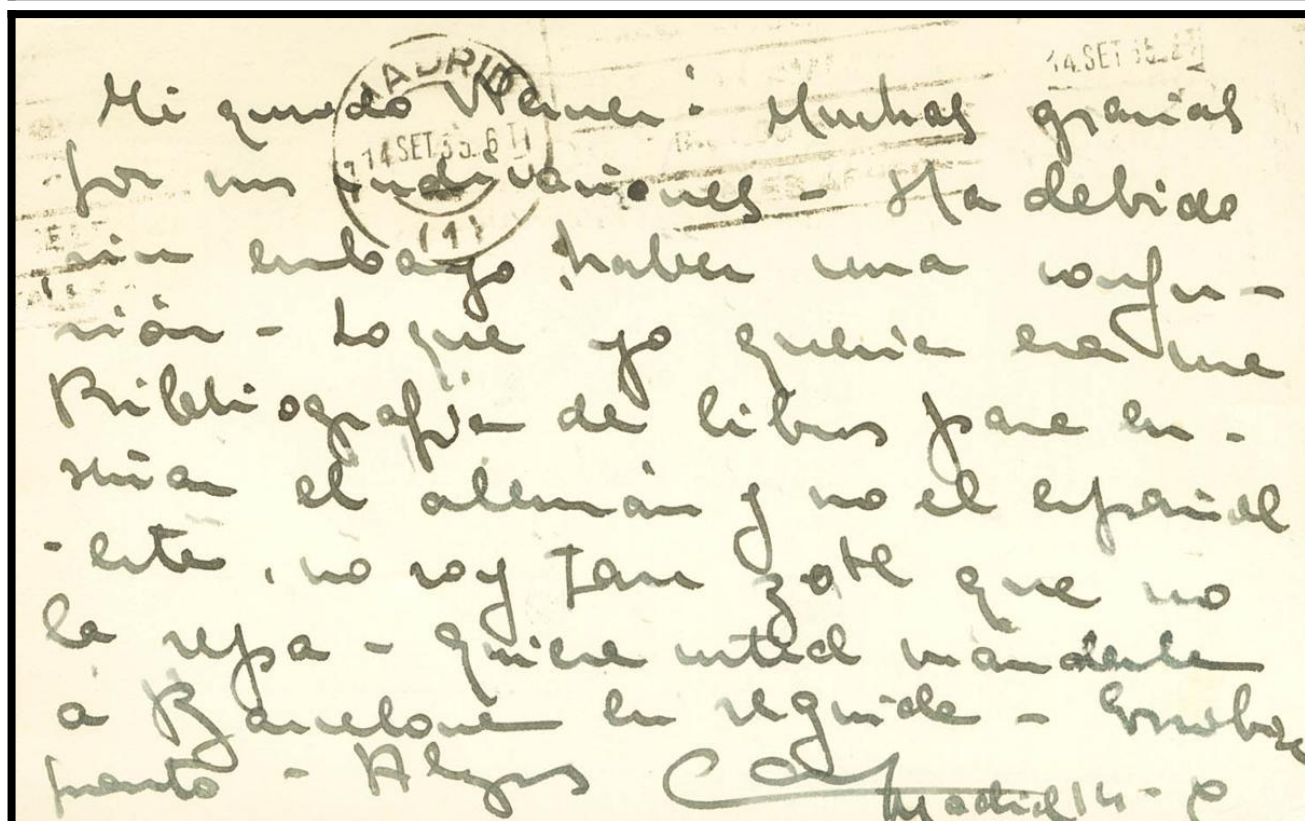 MADRID
14 SET 55. 6 T
(1)
14. SET 55.
Mi querido Werner: Muchas gracias
por sus indicaciones - Ha debido
sin embargo haber una confu-
sión - Lo que yo quería era una
Bibliografía de libros para en-
señar el alemán y no el español
- este, no soy tan zote que no
la sepa - Quiere usted mandarla
a Barcelona en seguida - Escribiré
pronto -
Madrid 14 -